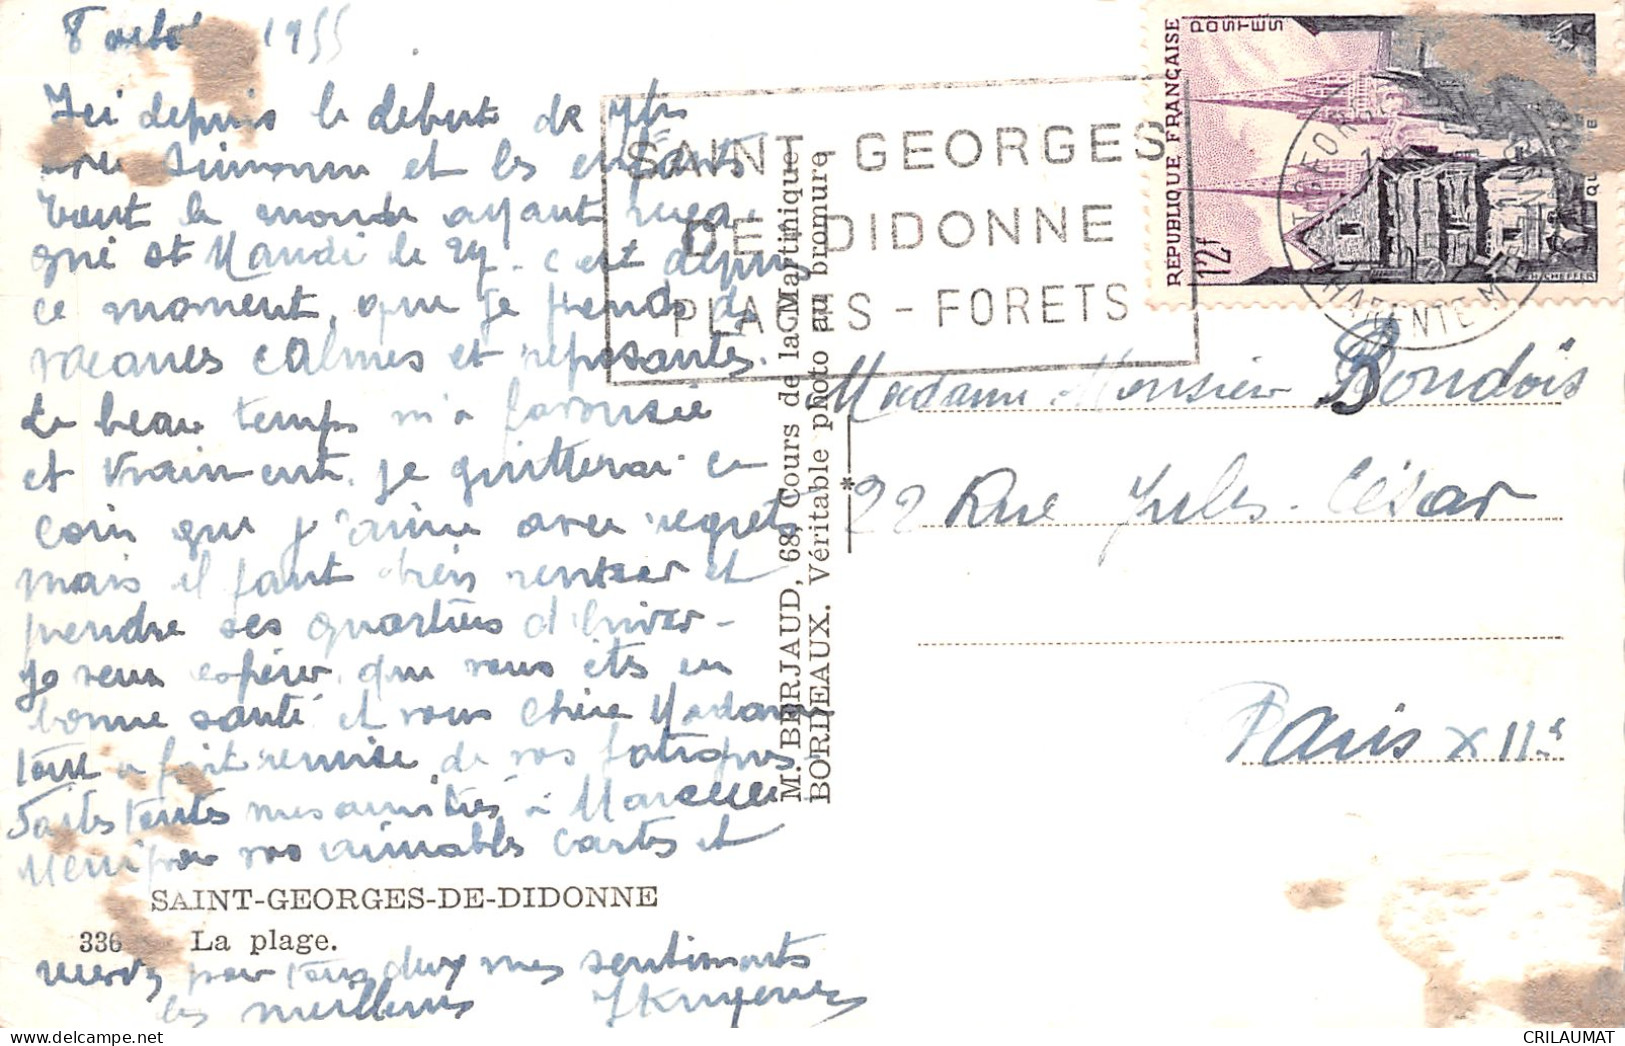 8 octob 1955
Ici depuis le debut de 7bre
avec Simonne et les enfants
tout le monde ayant rega-
gné St Mandé le 29 - c'est depuis
ce moment que je prends des
vacances calmes et reposantes.
Le beau temps m'a favorisée
et vraiment je quitterai ce
coin que j'aime avec regrets
mais il faut bien rentrer et
prendre ses quartiers d'hiver -
Je veux espérer que vous êtes en
bonne santé et vous chère Madame
tout à fait remise de vos fatigues -
Faites toutes mes amitiés à Marcelle
Merci pour vos aimables cartes et
SAINT-GEORGES-DE-DIDONNE
336 La plage.
pour tous deux mes sentiments
les meilleurs
M. BERJAUD, 68, Cours de la Martinique
BORDEAUX. Véritable photo au bromure
SAINT-GEORGES
DE-DIDONNE
PLAGES - FORETS
REPUBLIQUE FRANÇAISE
POSTES
12f
H.CHEFFER
ST GEORGES
CHARENTE MME
Madame Monsieur Bondois
22 Rue Jules-César
Paris XIIe
CRILAUMAT